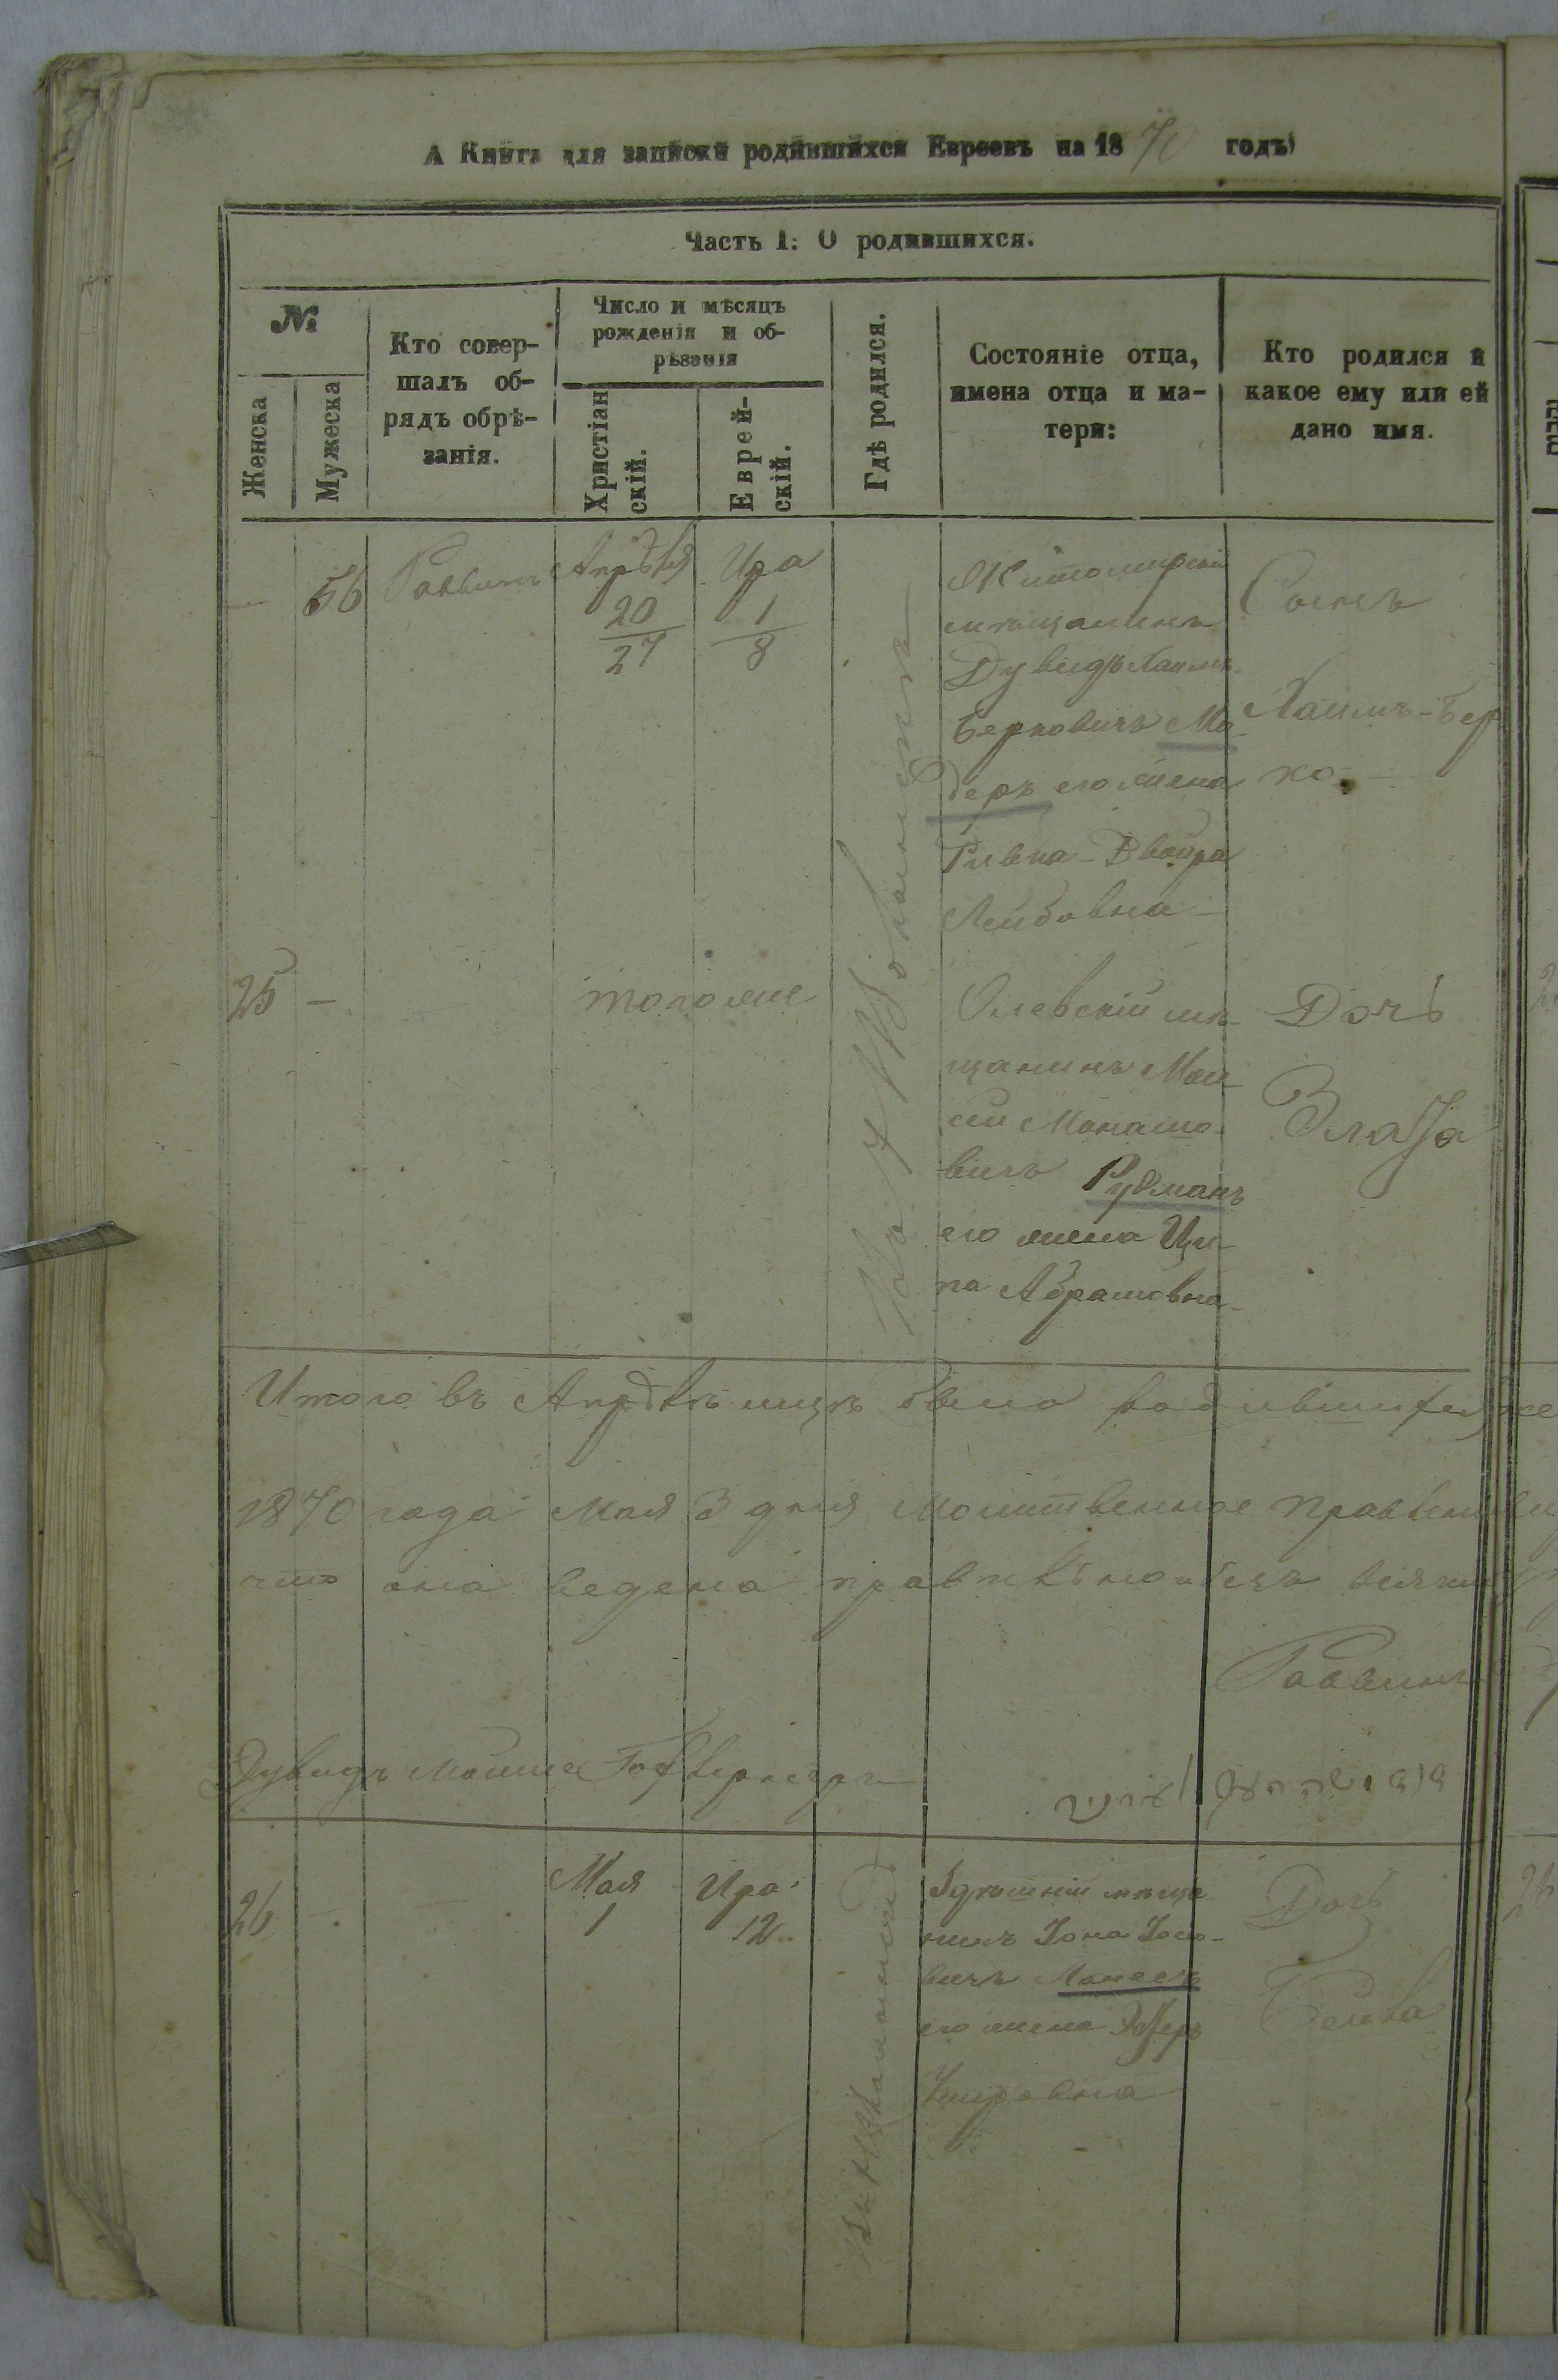 А Книга для записки родившихся Евреевъ на 1870 годъ
Часть I: О родившихся.
№
Женска
Мужеска
Кто совер-
шалъ об-
рядъ обрѣ-
занія.
Число и мѣсяцъ
рожденія и об-
рѣзанія
Христіан
скій.
Еврей-
скій.
Гдѣ родился.
Состояніе отца,
имена отца и ма-
тери:
Кто родился и
какое ему или ей
дано имя.
56
Раввинъ
Апрѣля
20
27
Ира
1
8
Житомирскій
мѣщанинъ
Дувидъ Хаимъ-
Берковичъ Мо-
деръ его жена
Ривка-Двойра
Лейбовна
Сынъ
Хаимъ-Бер
ко.
25 —
того же
Олевскій мѣ-
щанинъ Мои-
сей Монашо-
вичъ Рудманъ
его жена Ци-
па Абрамовна
Дочь
Злата
Итого въ Апрѣлѣ мцѣ было родившихся
1870 года Мая 3 дня Молитвенное Правленіе
что она ведена правильно и безъ всякихъ
Раввинъ
Дувидъ Мойше
26
Мая
1
Ира
12
Здѣшній мѣща-
нинъ Іона Іосіо-
вичъ
его жена Эстеръ
Дочь
Бейла